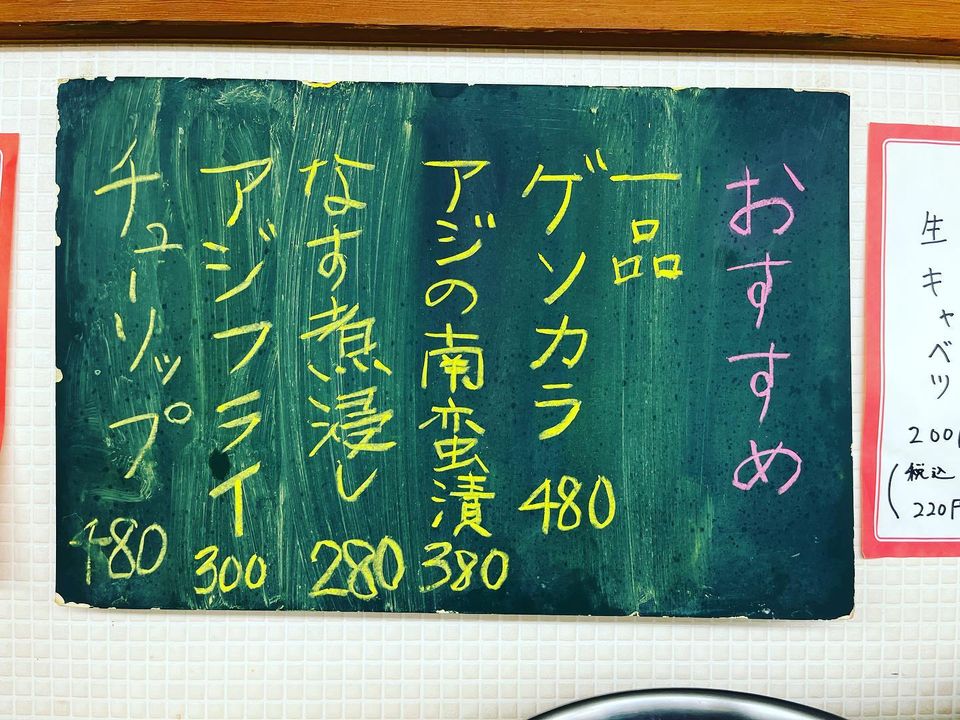 おすすめ
一品
ゲソカラ 480
アジの南蛮漬 380
なす煮浸し 280
アジフライ 300
チューリップ 480
生キャベツ
200
(税込
220円